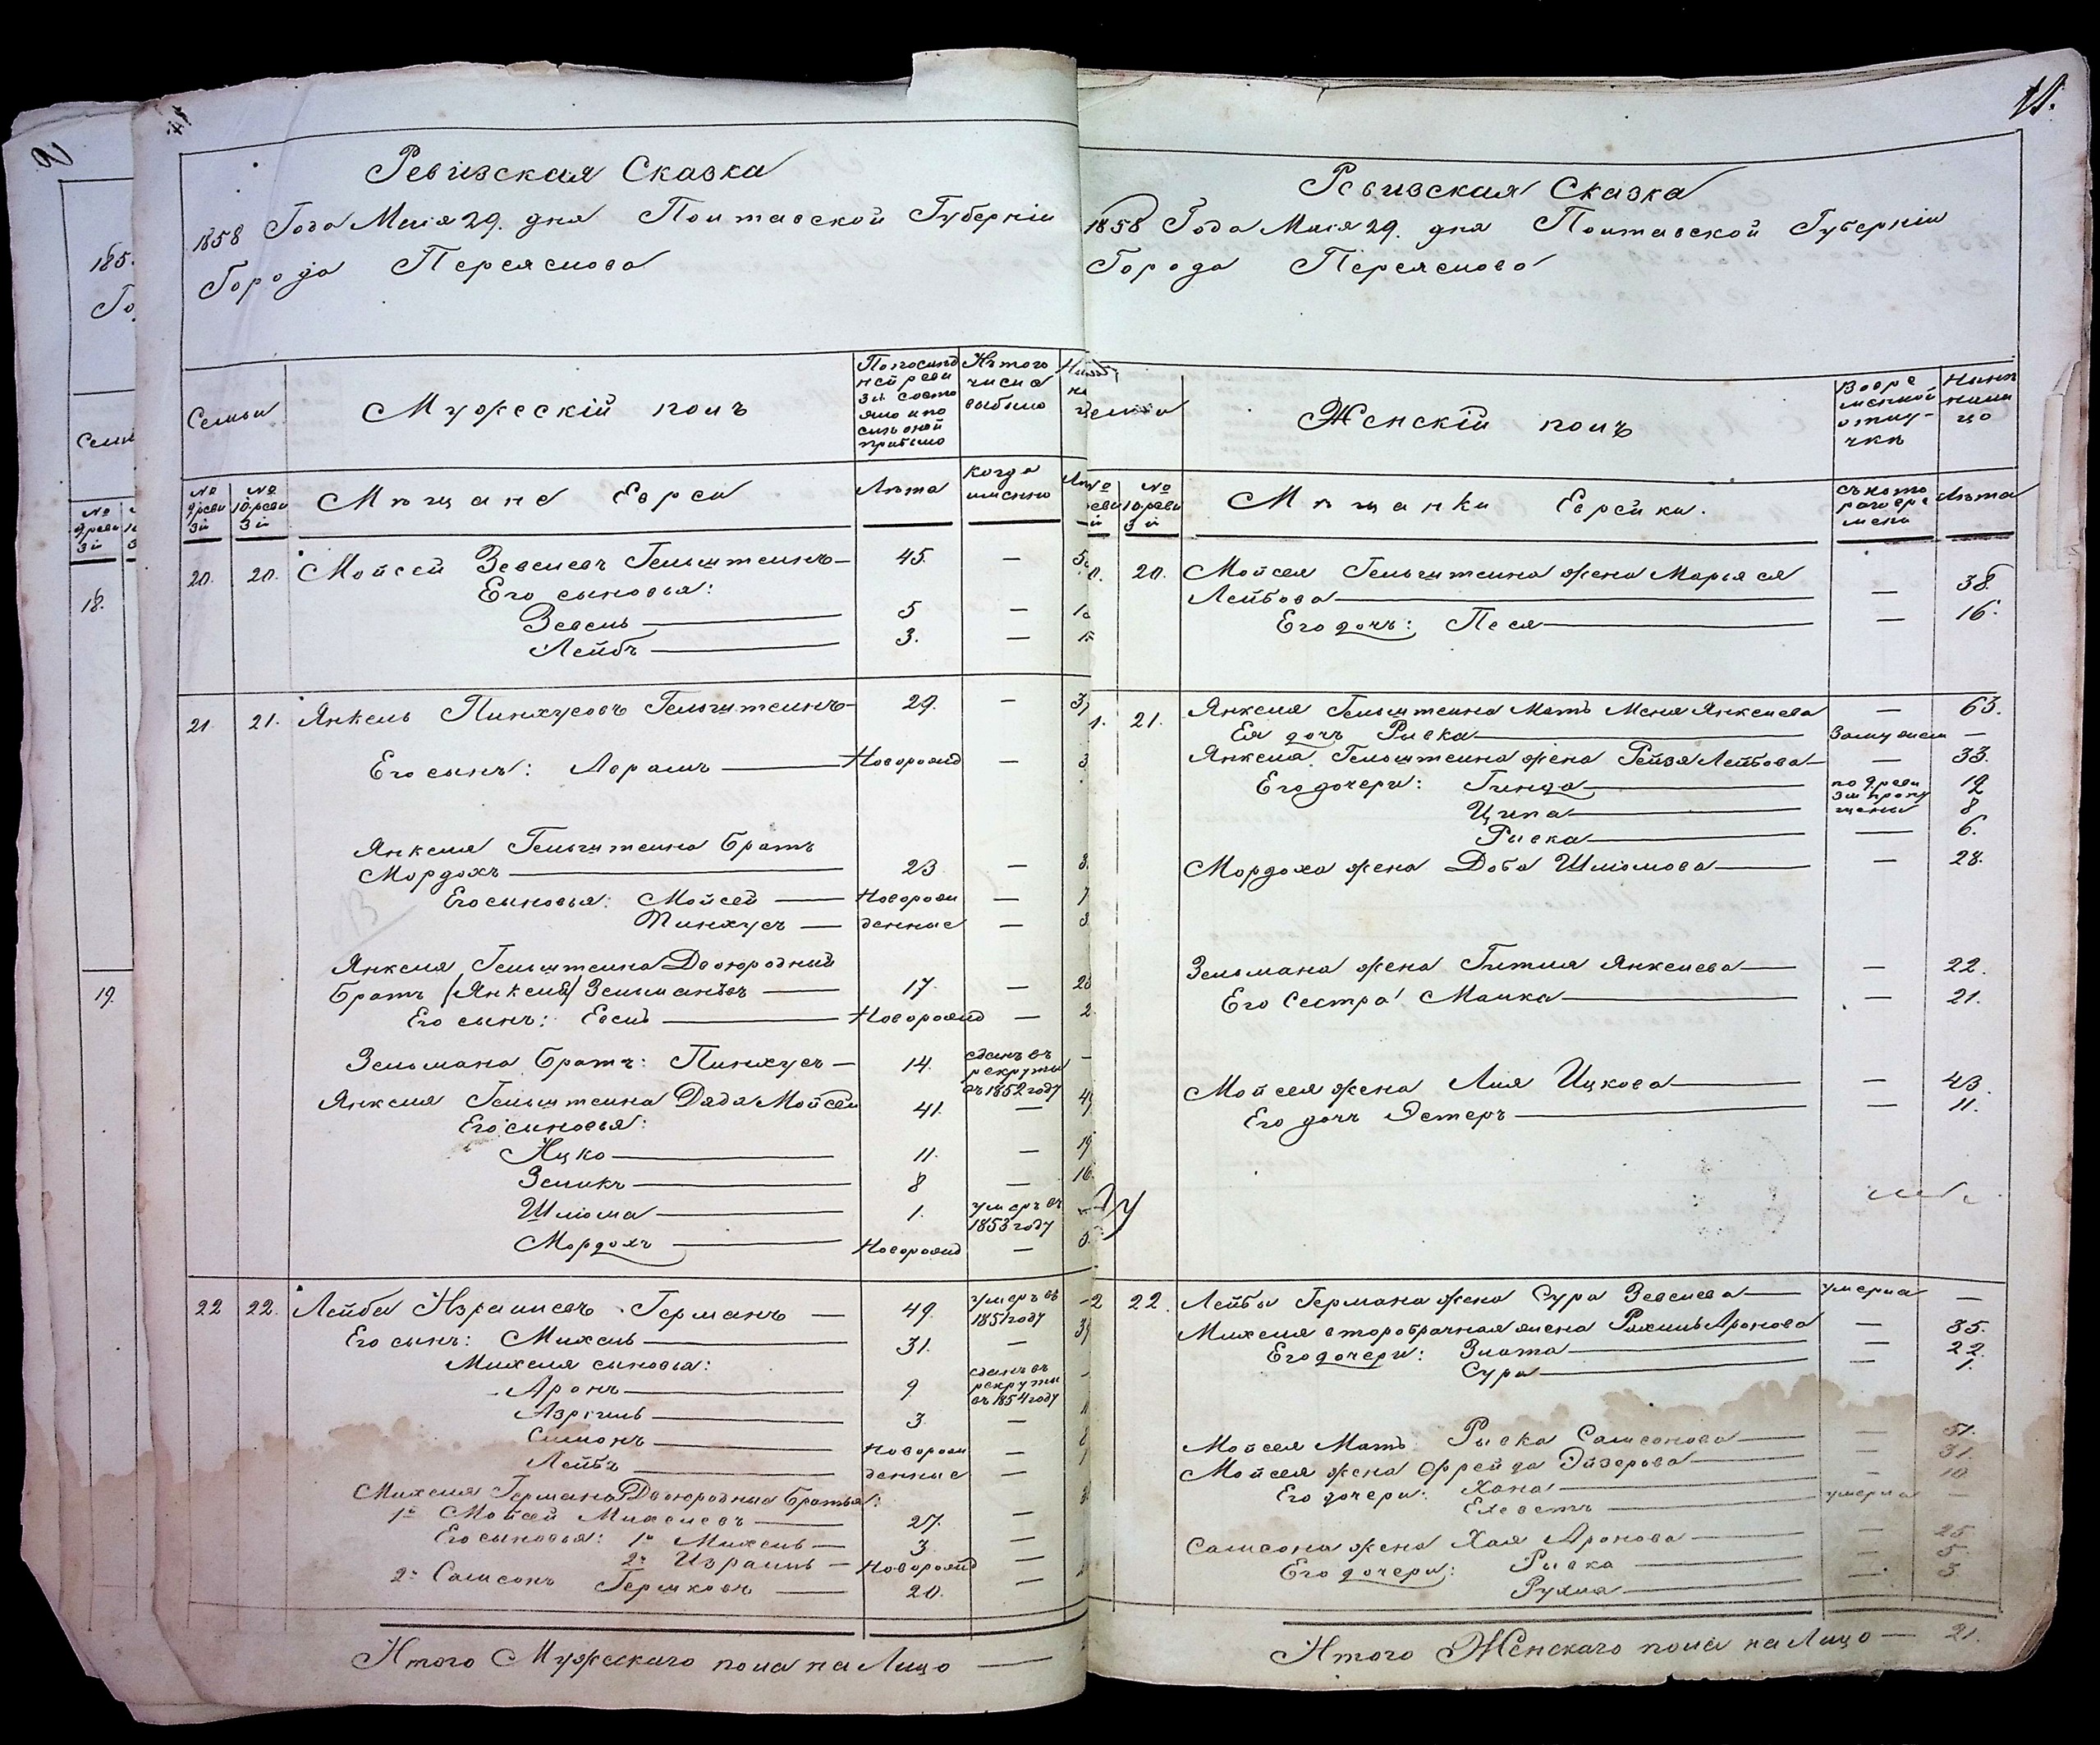 Ревизская Сказка
1858 Года Мая 29. дня Полтавской Губерніи
Города Переяслова
Семьи
Мужескій полъ
По последней ревизіи состояло и после оной прибыло
Изъ того числа выбыло
№ 9 ревизіи
№ 10. ревизіи
Мѣщане Евреи
Лѣта
Когда именно
20. 20. Мойсей Зевелевъ Гельштеинъ — 45. —
Его сыновья:
Зевель — 5 —
Лейбъ — 3. —
21. 21. Янкель Пинхусовъ Гельштеинъ — 29. —
Его сынъ: Абрамъ — Новорожд —
Янкеля Гельштеина Братъ
Мордохъ — 23 —
Его сыновья: Мойсей — Новорож —
Пинхусъ — денные —
Янкеля Гельштеина Двоюродный
Братъ Зельманъ — 17. —
Его сынъ: — Новорожд —
Зельмана Братъ: Пинхусъ — 14. сданъ въ рекруты въ 1852 году
Янкеля Гельштеина Дядя Мойсей 41. —
Его сыновья:
Ицко — 11. —
Зеликъ — 8 —
Шлiома — 1. умеръ въ 1853 году
Мордохъ — Новорожд —
22 22. Лейба Израилевъ Германъ — 49. умеръ въ 1851 году
Его сынъ: Михель — 31. —
Михеля сыновья:
Аронъ — 9 сданъ въ рекруты въ 1854 году
Азріиль — 3. —
Симонъ — Новорож —
Лейба — денные —
Михеля Германа Двоюродные Братья:
1й Мойсей Михелевъ — 27. —
Его сыновья: 1й Михель — 3. —
2й Израиль — Новорожд —
2й Самсонъ Гершковъ — 20. —
Итого Мужескаго пола на Лицо —
Ревизская Сказка
1858 Года Мая 29. дня Полтавской Губерніи
Города Переяслова
Женскій полъ
Во временной отлучкѣ
Нынѣ на лицо
№ 10. ревизіи
Мѣщанки Еврейки.
съ котораго времени
Лѣта
20. Мойсея Гельштеина жена Марьяся
Лейбова — — 38.
Его дочь: Песя — — 16.
21. Янкеля Гельштеина Мать Меня Янкелева — 63.
Ея дочь Рывка — Замужем —
Янкеля Гельштеина жена Рейзя Лейбова — — 33.
Его дочери: Гинда — по 9 ревизіи пропущены 12
Ципа — 8
Рывка — — 6.
Мордоха жена Доба Шлiомова — — 28.
Зельмана жена Гитля Янкелева — — 22.
Его Сестра Малка — — 21.
Мойсея жена Лия Ицкова — — 43.
Его дочь Эстеръ — — 11.
22. Лейбы Германа жена Сура Зевелева — умерла —
Михеля второбрачная жена Рахиль Аронова — 35.
Его дочери: Злата — — 22.
Сура — — 1.
Мойсея Мать Рывка Самсонова — — 51.
Мойсея жена Фрейда Эйзерова — — 31.
Его дочери: Хана — — 10
— умерла —
Самсона жена Хая Аронова — — 25
Его дочери: Рывка — — 5.
Рухля — — 3
Итого Женскаго пола на Лицо — 21.